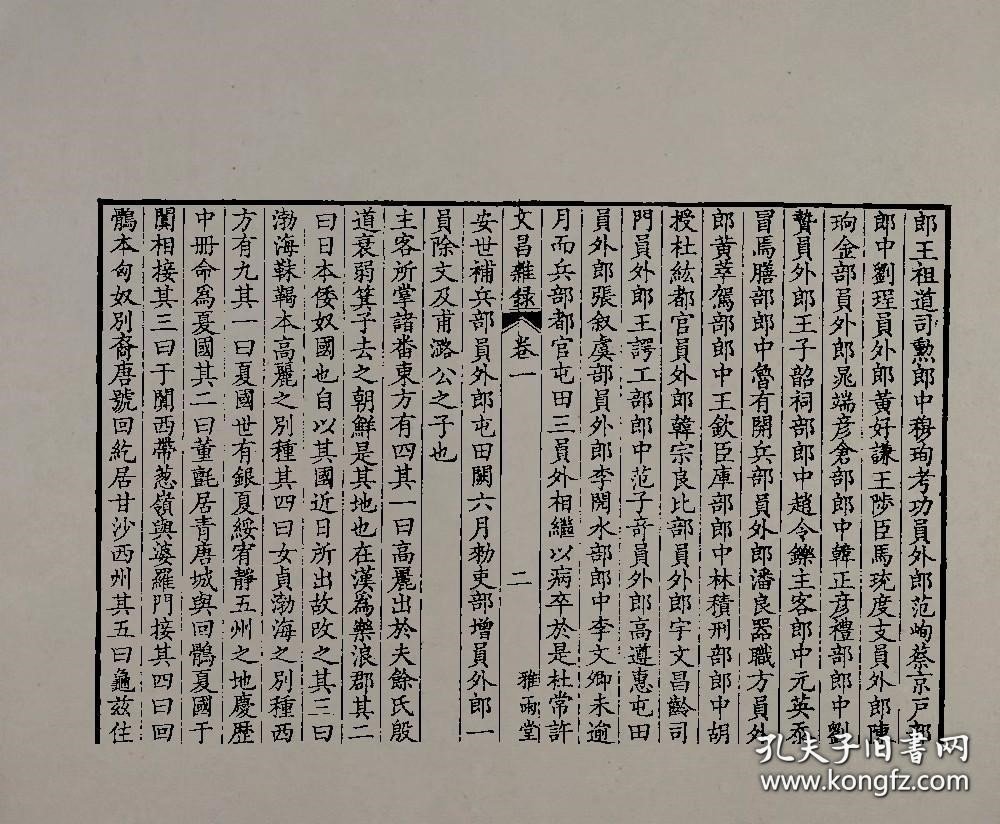 郎王祖道司勲郎中穆珣考功員外郎范峋蔡京戸部
郎中劉珵員外郎黄好謙王陟臣馬珫度支員外郎陳
珦金部員外郎晁端彦倉部郎中韓正彦禮部郎中劉
贄員外郎王子韶祠部郎中趙令鑠主客郎中元英忝
冒焉膳部郎中魯有開兵部員外郎潘良器職方員外
郎黄莘駕部郎中王欽臣庫部郎中林積刑部郎中胡
授杜紘都官員外郎韓宗良比部員外郎宇文昌齡司
門員外郎王諤工部郎中范子竒員外郎高遵惠屯田
員外郎張叙虞部員外郎李閌水部郎中李文卿未逾
月而兵部都官屯田三員外相繼以病卒於是杜常許
文昌雜録 卷一 二 雅雨堂
安世補兵部員外郎屯田闕六月勑吏部增員外郎一
員除文及甫潞公之子也
主客所掌諸番東方有四其一曰高麗出於夫餘氏殷
道衰弱箕子去之朝鮮是其地也在漢爲樂浪郡其二
曰日本倭奴國也自以其國近日所出故改之其三曰
渤海靺鞨本高麗之別種其四曰女貞渤海之別種西
方有九其一曰夏國世有銀夏綏宥靜五州之地慶歴
中册命爲夏國其二曰董氊居青唐城與回鶻夏國于
闐相接其三曰于闐西帶葱嶺與婆羅門接其四曰回
鶻本匈奴別裔唐號回紇居甘沙西州其五曰龜兹住
孔夫子旧书网
www.kongfz.com